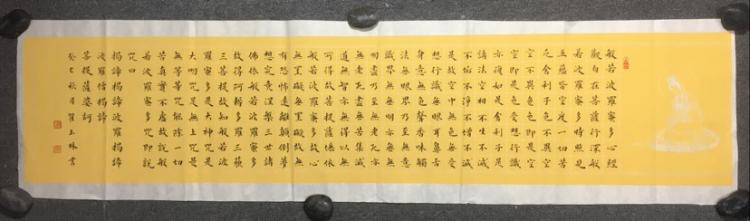 般若波羅蜜多心經
觀自在菩薩行深般
若波羅蜜多時照見
五蘊皆空度一切苦
厄舍利子色不異空
空不異色色即是空
空即是色受想行識
亦復如是舍利子是
諸法空相不生不滅
不垢不淨不增不減
是故空中無色無受
想行識無眼耳鼻舌
身意無色聲香味觸
法無眼界乃至無意
識界無無明亦無無
明盡乃至無老死亦
無老死盡無苦集滅
道無智亦無得以無
所得故菩提薩埵依
般若波羅蜜多故心
無罣礙無罣礙故無
有恐怖遠離顛倒夢
想究竟涅槃三世諸
佛依般若波羅蜜多
故得阿耨多羅三藐
三菩提故知般若波
羅蜜多是大神咒是
大明咒是無上咒是
無等等咒能除一切
苦真實不虛故說般
若波羅蜜多咒即說
咒曰
揭諦揭諦波羅揭諦
波羅僧揭諦
菩提薩婆訶
癸巳秋月玉珠書